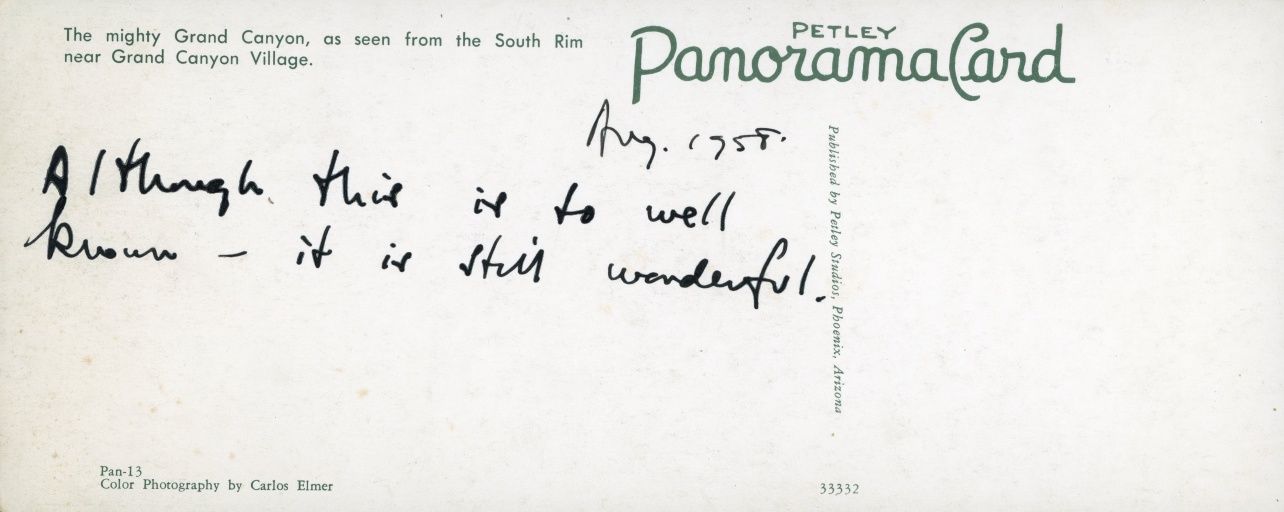 The mighty Grand Canyon, as seen from the South Rim
near Grand Canyon Village.
PETLEY
PanoramaCard
Aug. 1958.
Although this is to well
known – it is still wonderful.
Published by Petley Studios, Phoenix, Arizona
Pan-13
Color Photography by Carlos Elmer
33332